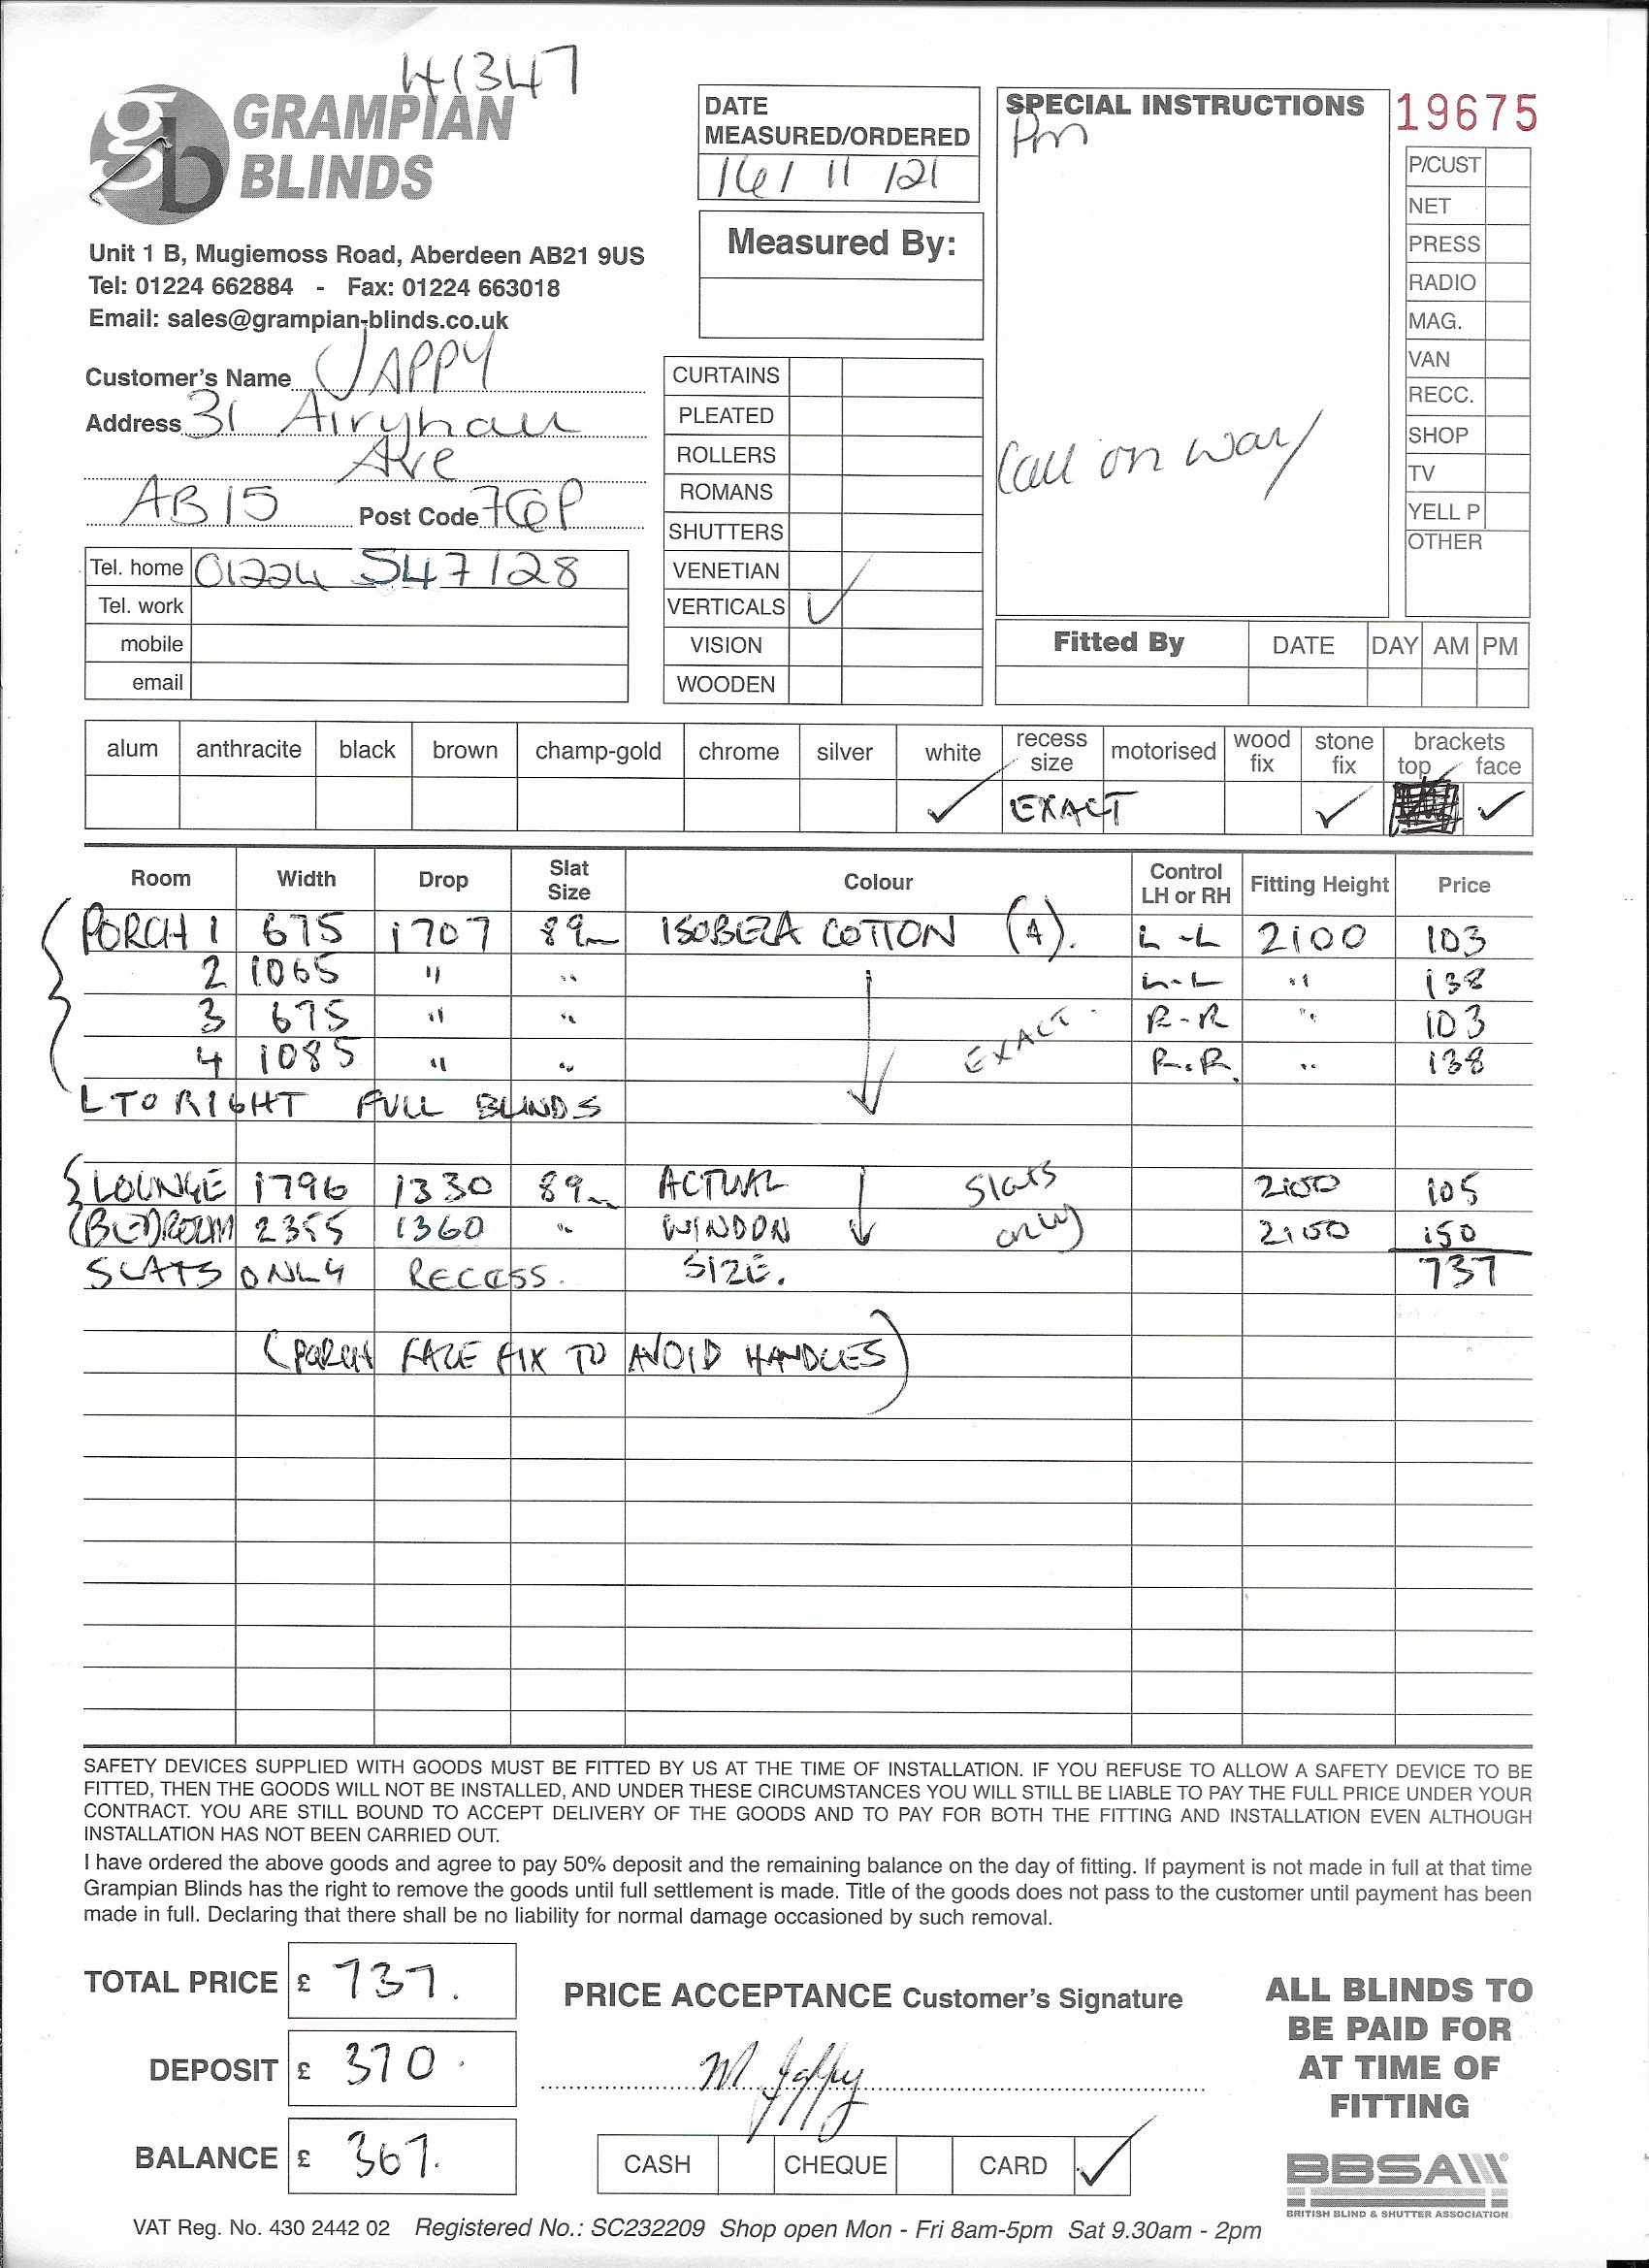 41347
GRAMPIAN
BLINDS
Unit 1 B, Mugiemoss Road, Aberdeen AB21 9US
Tel: 01224 662884 - Fax: 01224 663018
Email: sales@grampian-blinds.co.uk
Customer's Name JAPPY
Address 31 Airyhall
Ave
AB15 Post Code 7QP
Tel. home 01224 547128
Tel. work
mobile
email
DATE
MEASURED/ORDERED
16/ 11 /21
Measured By:
CURTAINS
PLEATED
ROLLERS
ROMANS
SHUTTERS
VENETIAN
VERTICALS ✓
VISION
WOODEN
SPECIAL INSTRUCTIONS
Pm
Call on way
19675
P/CUST
NET
PRESS
RADIO
MAG.
VAN
RECC.
SHOP
TV
YELL P
OTHER
Fitted By DATE DAY AM PM
alum anthracite black brown champ-gold chrome silver white recess size motorised wood fix stone fix brackets top face
✓ EXACT ✓ ✓
Room Width Drop Slat Size Colour Control LH or RH Fitting Height Price
PORCH 1 675 1707 89m ISOBELA COTTON (A). L-L 2100 103
2 1065 " " L-L " 138
3 675 " " R-R " 103
4 1085 " " EXACT. R.R. " 138
L TO RIGHT FULL BLINDS
LOUNGE 1796 1330 89m ACTUAL Slats 2100 105
BEDROOM 2355 1360 " WINDOW only 2100 150
SLATS ONLY RECESS. SIZE. 737
(PORCH FACE FIX TO AVOID HANDLES)
SAFETY DEVICES SUPPLIED WITH GOODS MUST BE FITTED BY US AT THE TIME OF INSTALLATION. IF YOU REFUSE TO ALLOW A SAFETY DEVICE TO BE
FITTED, THEN THE GOODS WILL NOT BE INSTALLED, AND UNDER THESE CIRCUMSTANCES YOU WILL STILL BE LIABLE TO PAY THE FULL PRICE UNDER YOUR
CONTRACT. YOU ARE STILL BOUND TO ACCEPT DELIVERY OF THE GOODS AND TO PAY FOR BOTH THE FITTING AND INSTALLATION EVEN ALTHOUGH
INSTALLATION HAS NOT BEEN CARRIED OUT.
I have ordered the above goods and agree to pay 50% deposit and the remaining balance on the day of fitting. If payment is not made in full at that time
Grampian Blinds has the right to remove the goods until full settlement is made. Title of the goods does not pass to the customer until payment has been
made in full. Declaring that there shall be no liability for normal damage occasioned by such removal.
TOTAL PRICE £ 737.
DEPOSIT £ 370.
BALANCE £ 367.
PRICE ACCEPTANCE Customer's Signature
M Jappy
CASH CHEQUE CARD ✓
ALL BLINDS TO
BE PAID FOR
AT TIME OF
FITTING
BBSA
BRITISH BLIND & SHUTTER ASSOCIATION
VAT Reg. No. 430 2442 02 Registered No.: SC232209 Shop open Mon - Fri 8am-5pm Sat 9.30am - 2pm